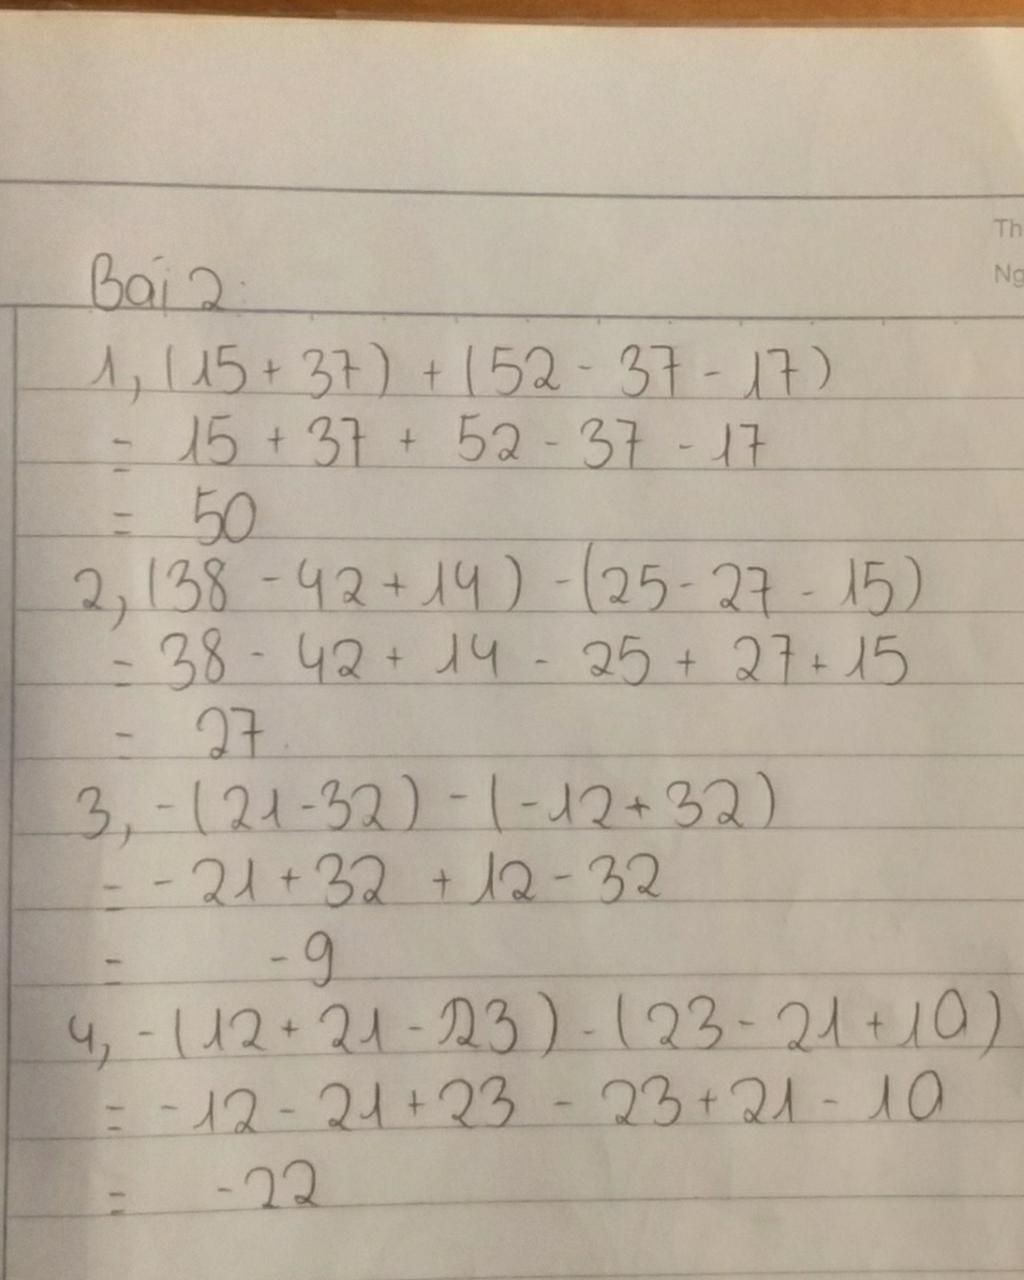 Th
Ng
Bài 2:
1, (15 + 37) + (52 - 37 - 17)
= 15 + 37 + 52 - 37 - 17
= 50
2, (38 - 42 + 14) - (25 - 27 - 15)
= 38 - 42 + 14 - 25 + 27 + 15
= 27
3, -(21 - 32) - (-12 + 32)
= -21 + 32 + 12 - 32
= -9
4, -(12 + 21 - 23) - (23 - 21 + 10)
= -12 - 21 + 23 - 23 + 21 - 10
= -22